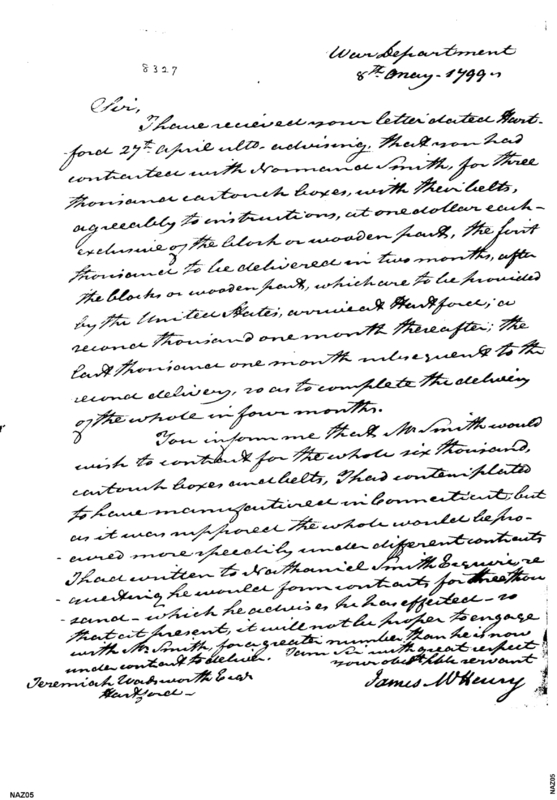 War Department
8327
8th May 1799
Sir,
I have recieved your letter dated Hart-
ford 27th April ulto. advising, that you had
contracted with Normand Smith, for three
thousand cartouch boxes, with their belts,
agreeably to instructions, at one dollar each
exclusive of the block or wooden part, the first
thousand to be delivered in two months, after
the blocks or wooden part, which are to be provided
by the United States, arrive at Hartford; a
second thousand one month thereafter; the
last thousand one month subsequent to the
second delivery, so as to complete the delivery
of the whole in four months.
You inform me that Mr Smith would
wish to contract for the whole six thousand,
cartouch boxes and belts, I had contemplated
to have manufactured in Connecticut, but
as it was supposed the whole would be pro-
-cured more speedily under different contracts
I had written to Nathaniel Smith Esquire re
-questing he would form contracts for three thou
-sand - which he advises he has effected - so
that at present, it will not be proper to engage
with Mr Smith, for a greater number than he is now
under contract to deliver. I am Sir with great respect
your obt hble servant
Jeremiah Wadsworth Esqr
James McHenry
Hartford -
NAZ05
NAZ05